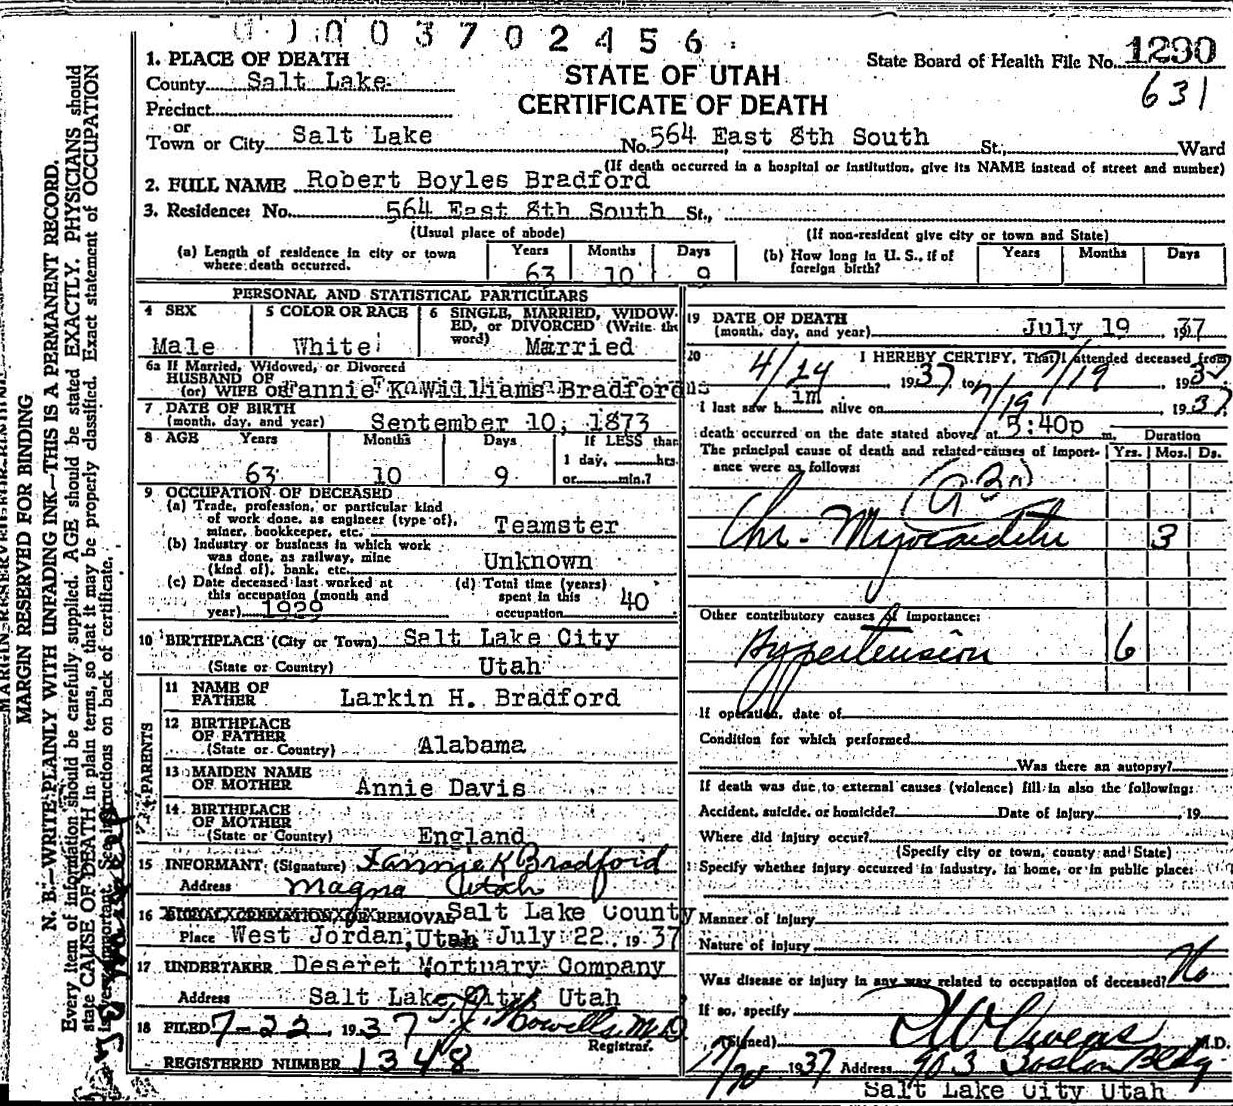 0 0 0 0 3 7 0 2 4 5 6
1. PLACE OF DEATH
County Salt Lake
Precinct
or
Town or City Salt Lake
STATE OF UTAH
CERTIFICATE OF DEATH
State Board of Health File No. 1290
631
No. 564 East 8th South St., Ward
(If death occurred in a hospital or institution, give its NAME instead of street and number)
2. FULL NAME Robert Boyles Bradford
3. Residence: No. 564 East 8th South St.,
(Usual place of abode) (If non-resident give city or town and State)
(a) Length of residence in city or town where death occurred. Years 63 Months 10 Days 9
(b) How long in U. S., if of foreign birth? Years Months Days
PERSONAL AND STATISTICAL PARTICULARS
4 SEX Male
5 COLOR OR RACE White
6 SINGLE, MARRIED, WIDOWED, or DIVORCED (Write the word) Married
6a If Married, Widowed, or Divorced
HUSBAND OF
(or) WIFE OF Fannie K Williams Bradford
7 DATE OF BIRTH
(month, day, and year) September 10, 1873
8 AGE Years 63 Months 10 Days 9
If LESS than
1 day, hrs.
or min.?
9 OCCUPATION OF DECEASED
(a) Trade, profession, or particular kind
of work done, as engineer (type of),
miner, bookkeeper, etc. Teamster
(b) Industry or business in which work
was done, as railway, mine
(kind of), bank, etc. Unknown
(c) Date deceased last worked at
this occupation (month and
year) 1929
(d) Total time (years)
spent in this
occupation 40
10 BIRTHPLACE (City or Town) Salt Lake City
(State or Country) Utah
PARENTS
11 NAME OF
FATHER Larkin H. Bradford
12 BIRTHPLACE
OF FATHER
(State or Country) Alabama
13 MAIDEN NAME
OF MOTHER Annie Davis
14 BIRTHPLACE
OF MOTHER
(State or Country) England
15 INFORMANT (Signature) Fannie K Bradford
Address Magna Utah
16 BURIAL, CREMATION OR REMOVAL Salt Lake County
Place West Jordan, Utah July 22, 1937
17 UNDERTAKER Deseret Mortuary Company
Address Salt Lake City Utah
18 FILED 7-22, 1937 T. J. Howells, M.D.
Registrar.
REGISTERED NUMBER 1348
19 DATE OF DEATH
(month, day, and year) July 19 1937
20 I HEREBY CERTIFY, That I attended deceased from
4/24 1937 to 7/19 1937
I last saw him alive on 7/19 1937
death occurred on the date stated above, at 5:40p m.
The principal cause of death and related causes of importance were as follows:
Duration
Yrs. Mos. Ds.
Chr. Myocarditis 3
Other contributory causes of importance:
Hypertension 6
If operation, date of
Condition for which performed
Was there an autopsy?
If death was due to external causes (violence) fill in also the following:
Accident, suicide, or homicide? Date of injury 19
Where did injury occur?
(Specify city or town, county and State)
Specify whether injury occurred in industry, in home, or in public place:
Manner of injury
Nature of injury
Was disease or injury in any way related to occupation of deceased? No
If so, specify
(Signed) Owens M.D.
7/20 1937 Address 903 Boston Bldg
Salt Lake City Utah
MARGIN RESERVED FOR BINDING
N. B.—WRITE PLAINLY WITH UNFADING INK—THIS IS A PERMANENT RECORD.
Every item of information should be carefully supplied. AGE should be stated EXACTLY. PHYSICIANS should
state CAUSE OF DEATH in plain terms, so that it may be properly classified. Exact statement of OCCUPATION
is very important. See instructions on back of certificate.